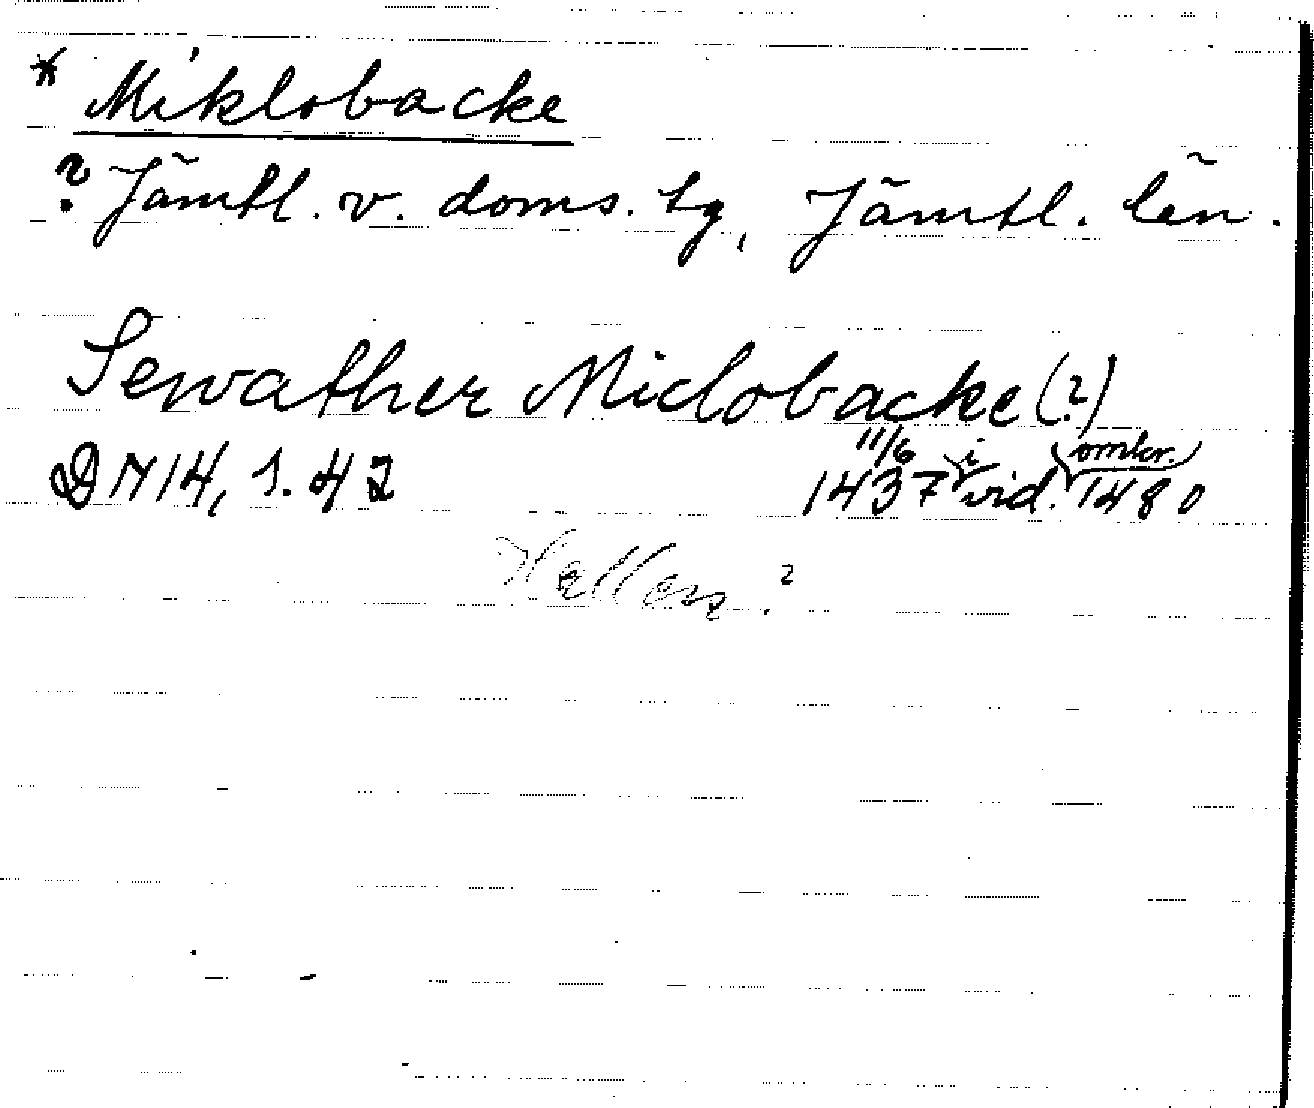 * Miklobacke
? Jämtl. v. doms. tg, Jämtl. län.
Sewather Miclobacke (?)
DN 14, s. 42 11/6 1437 i vid. omkr. 1480
?